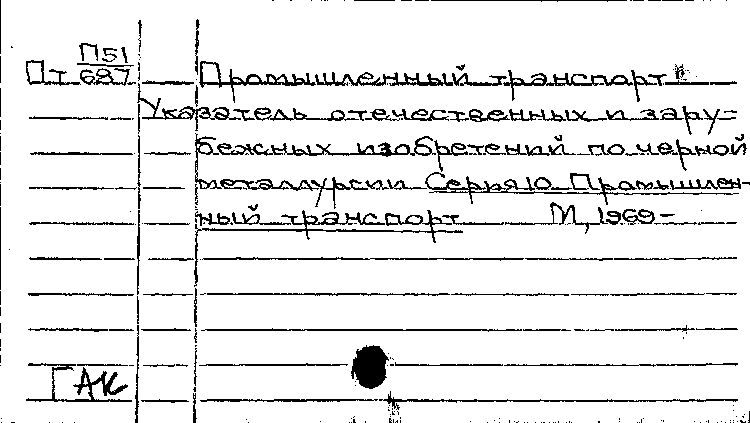 Пт П51/687 Промышленный транспорт
Указатель отечественных и зару-
бежных изобретений по черной
металлургии Серия 10 Промышлен-
ный транспорт М, 1969-
ГАК